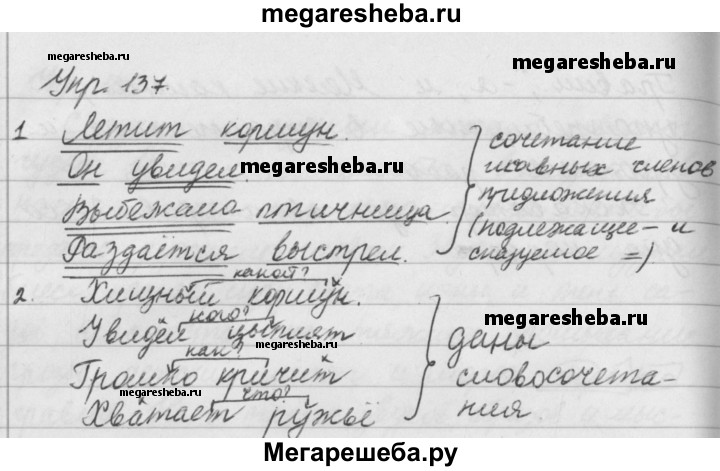 megaresheba.ru
megaresheba.ru
megaresheba.ru
Упр. 137.
1. Летит коршун.
Он увидел.
megaresheba.ru
Выбежала птичница.
Раздаётся выстрел.
сочетание
главных членов
предложения
(подлежащее – и
сказуемое =)
какой?
2. Хищный коршун.
кого?
Увидел цыплят
megaresheba.ru
megaresheba.ru
как?
Громко кричит
megaresheba.ru
что?
Хватает ружьё
даны
словосочета-
ния.
megaresheba.ru
Мегарешеба.ру